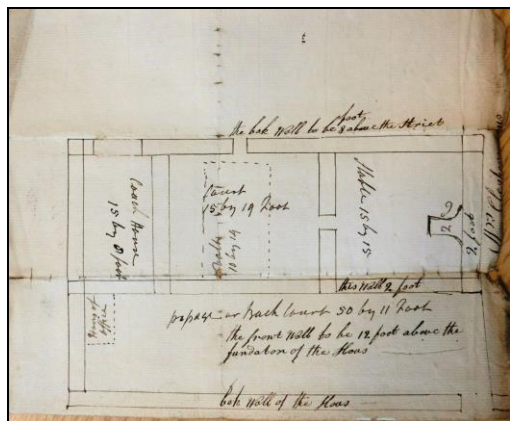 the bak Wall to be 8 foot above the Street
Coach House
15 by 8 foot
Court
15 by 19 Foot
11 by 11
Stable 15 by 15
2
2 foot
this Wall 2 foot
or Back Court 50 by 11 Foot
the front Wall to be 12 foot above the
fundation of the Hous
bak Wall of the Hous